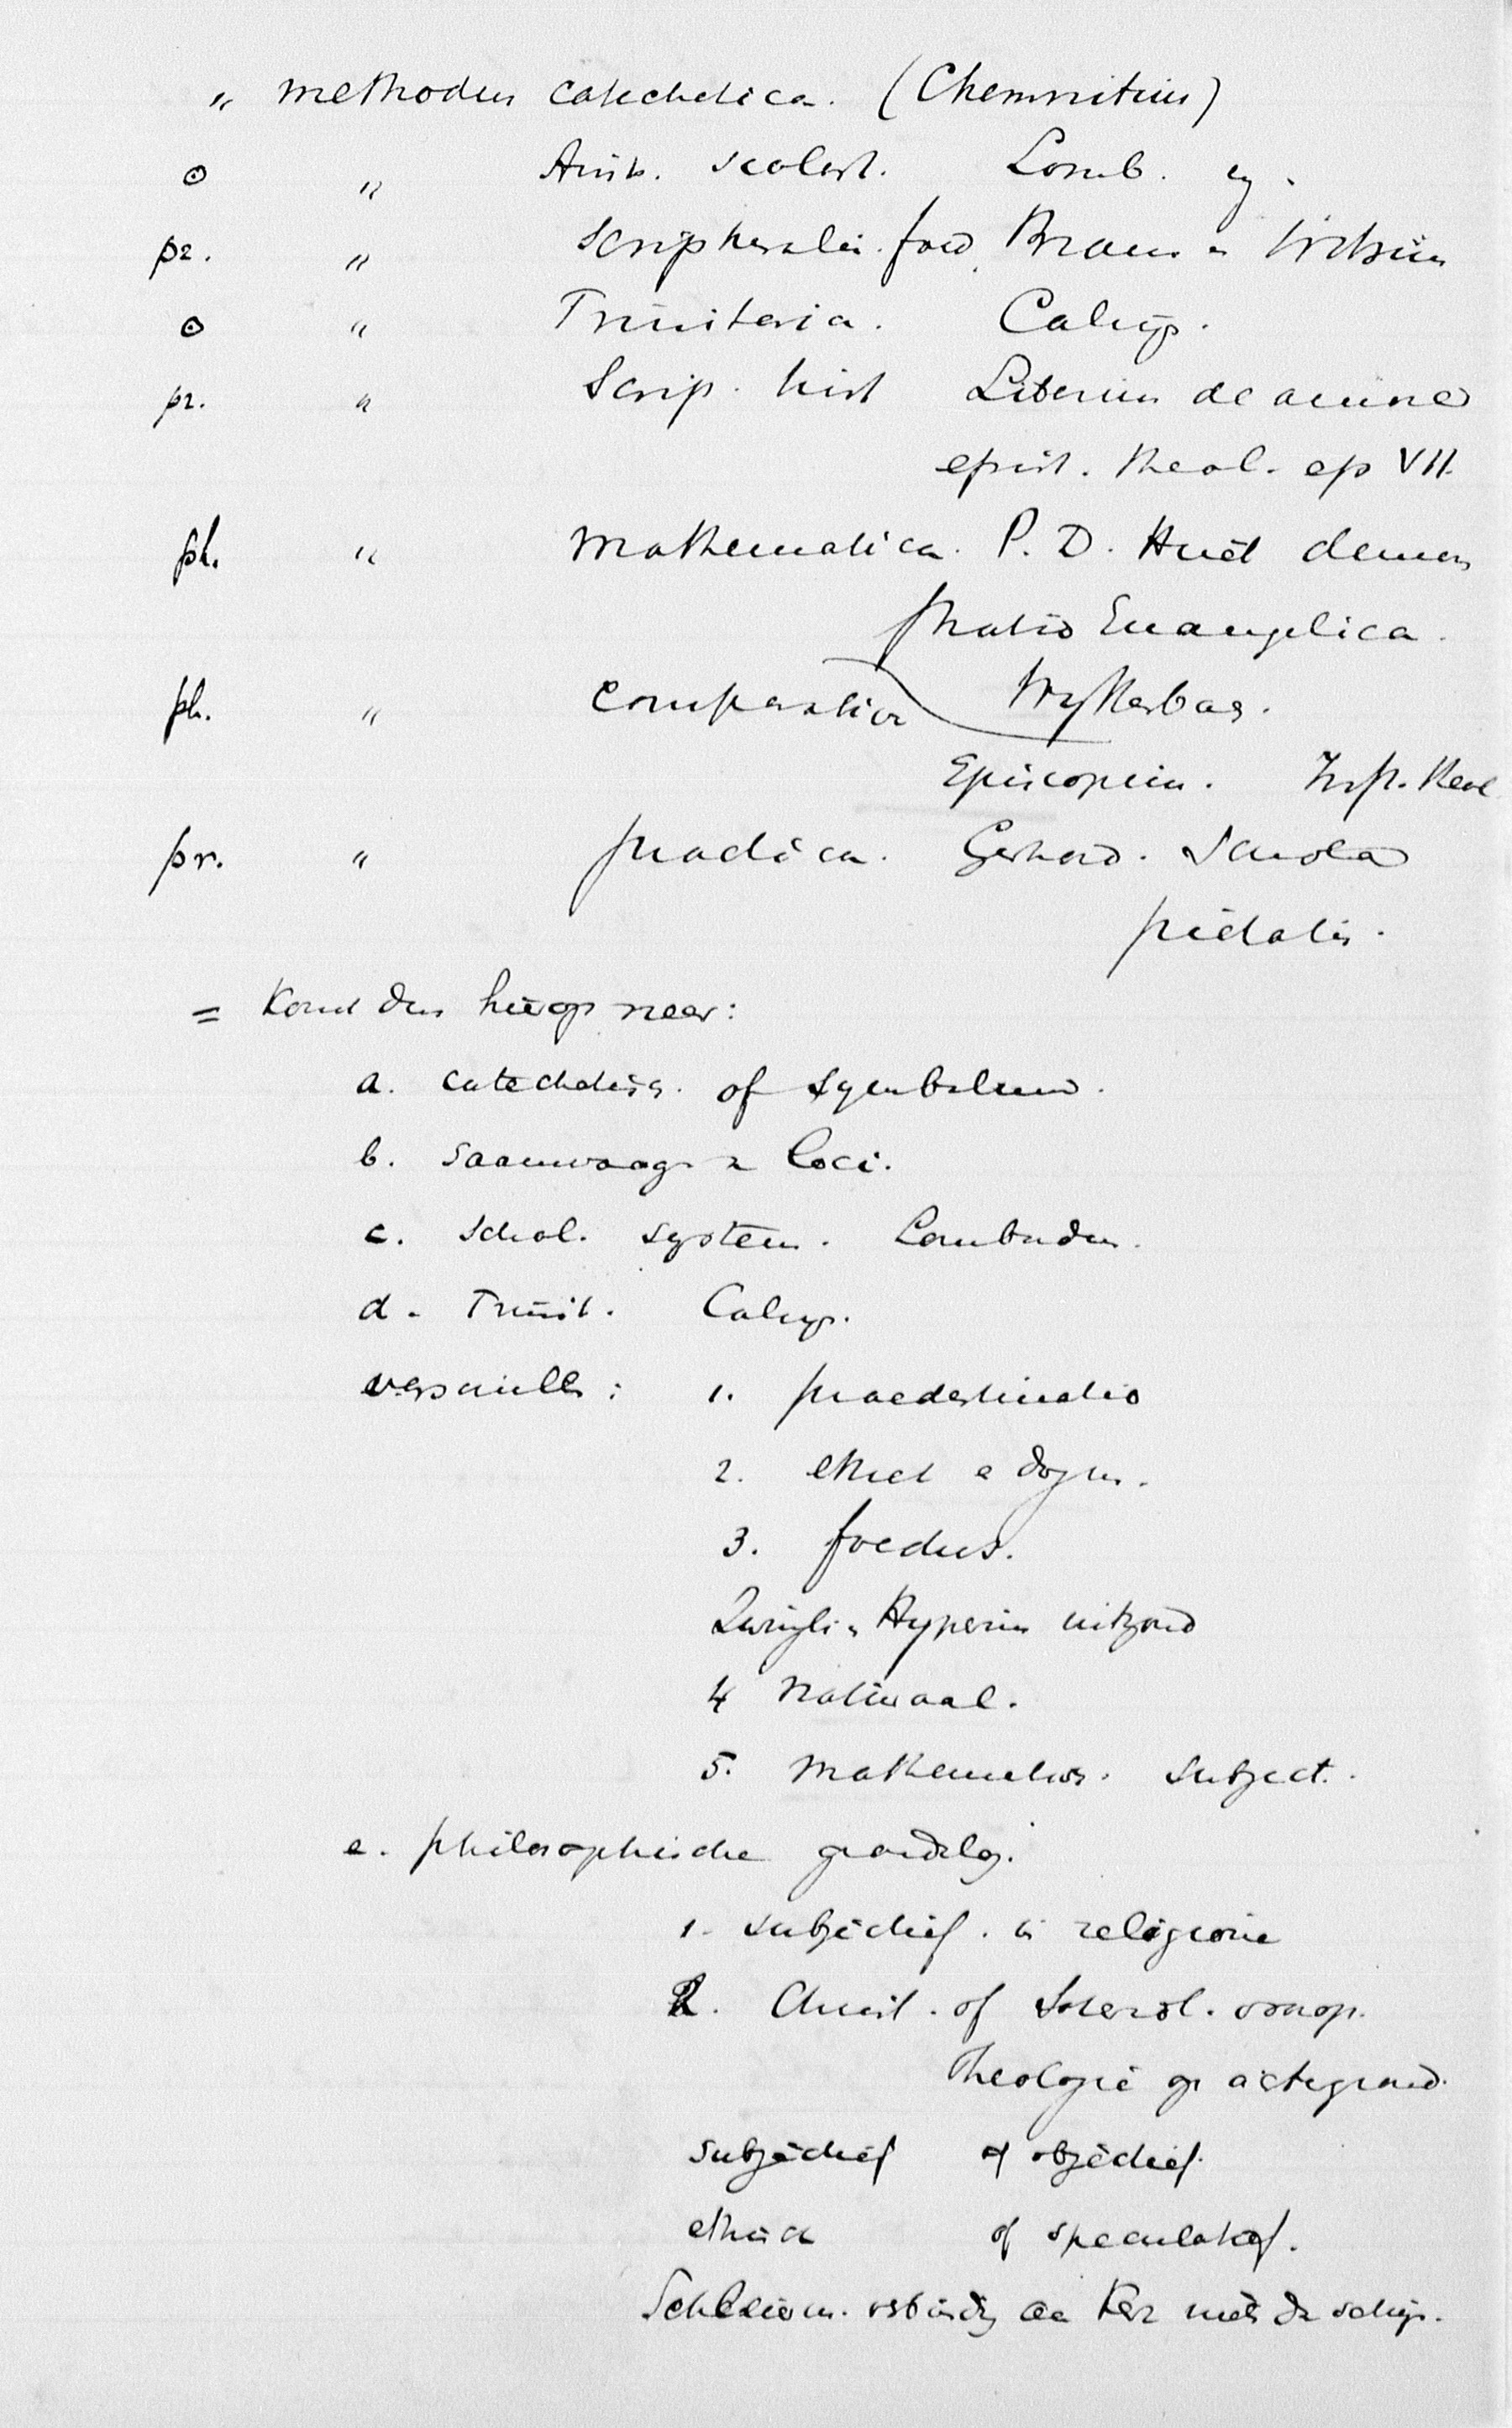 " methodus catechetica. (Chemnitius)
o " Arist. scolast. Lomb. eg.
pr. " Scripturalis. foed. Braun en Witsius
o " Trinitaria. Calvijn.
pr. " Scrip. hist Liberius de amore
epist. theol. ep VII.
ph. " mathematica. P. D. Huët demon
stratio Euangelica.
ph. " comparativa Wyttenbach.
Episcopius. Inst. theol
pr. " practica. Gerhard. Schola
pietatis.
= Komt dus hierop neer:
a. catechetisch. of symbolum.
b. saamvoeg. v. loci.
c. schol. systeem. Lombardus.
d. Trinit. Calvijn.
verschillen: 1. praedestinatio
2. ethiek en dogm.
3. foedus.
Zwingli en Hyperius uitgezond
4 nationaal.
5. mathematisch. subject.
e. philosophische grondslag.
1. subjectief. in religione
2. Christ. of Soterol. voorop.
Theologie op achtergrond.
subjectief of objectief.
ethisch of speculatief.
Schleierm. verbinding der Kerk met de schrift.